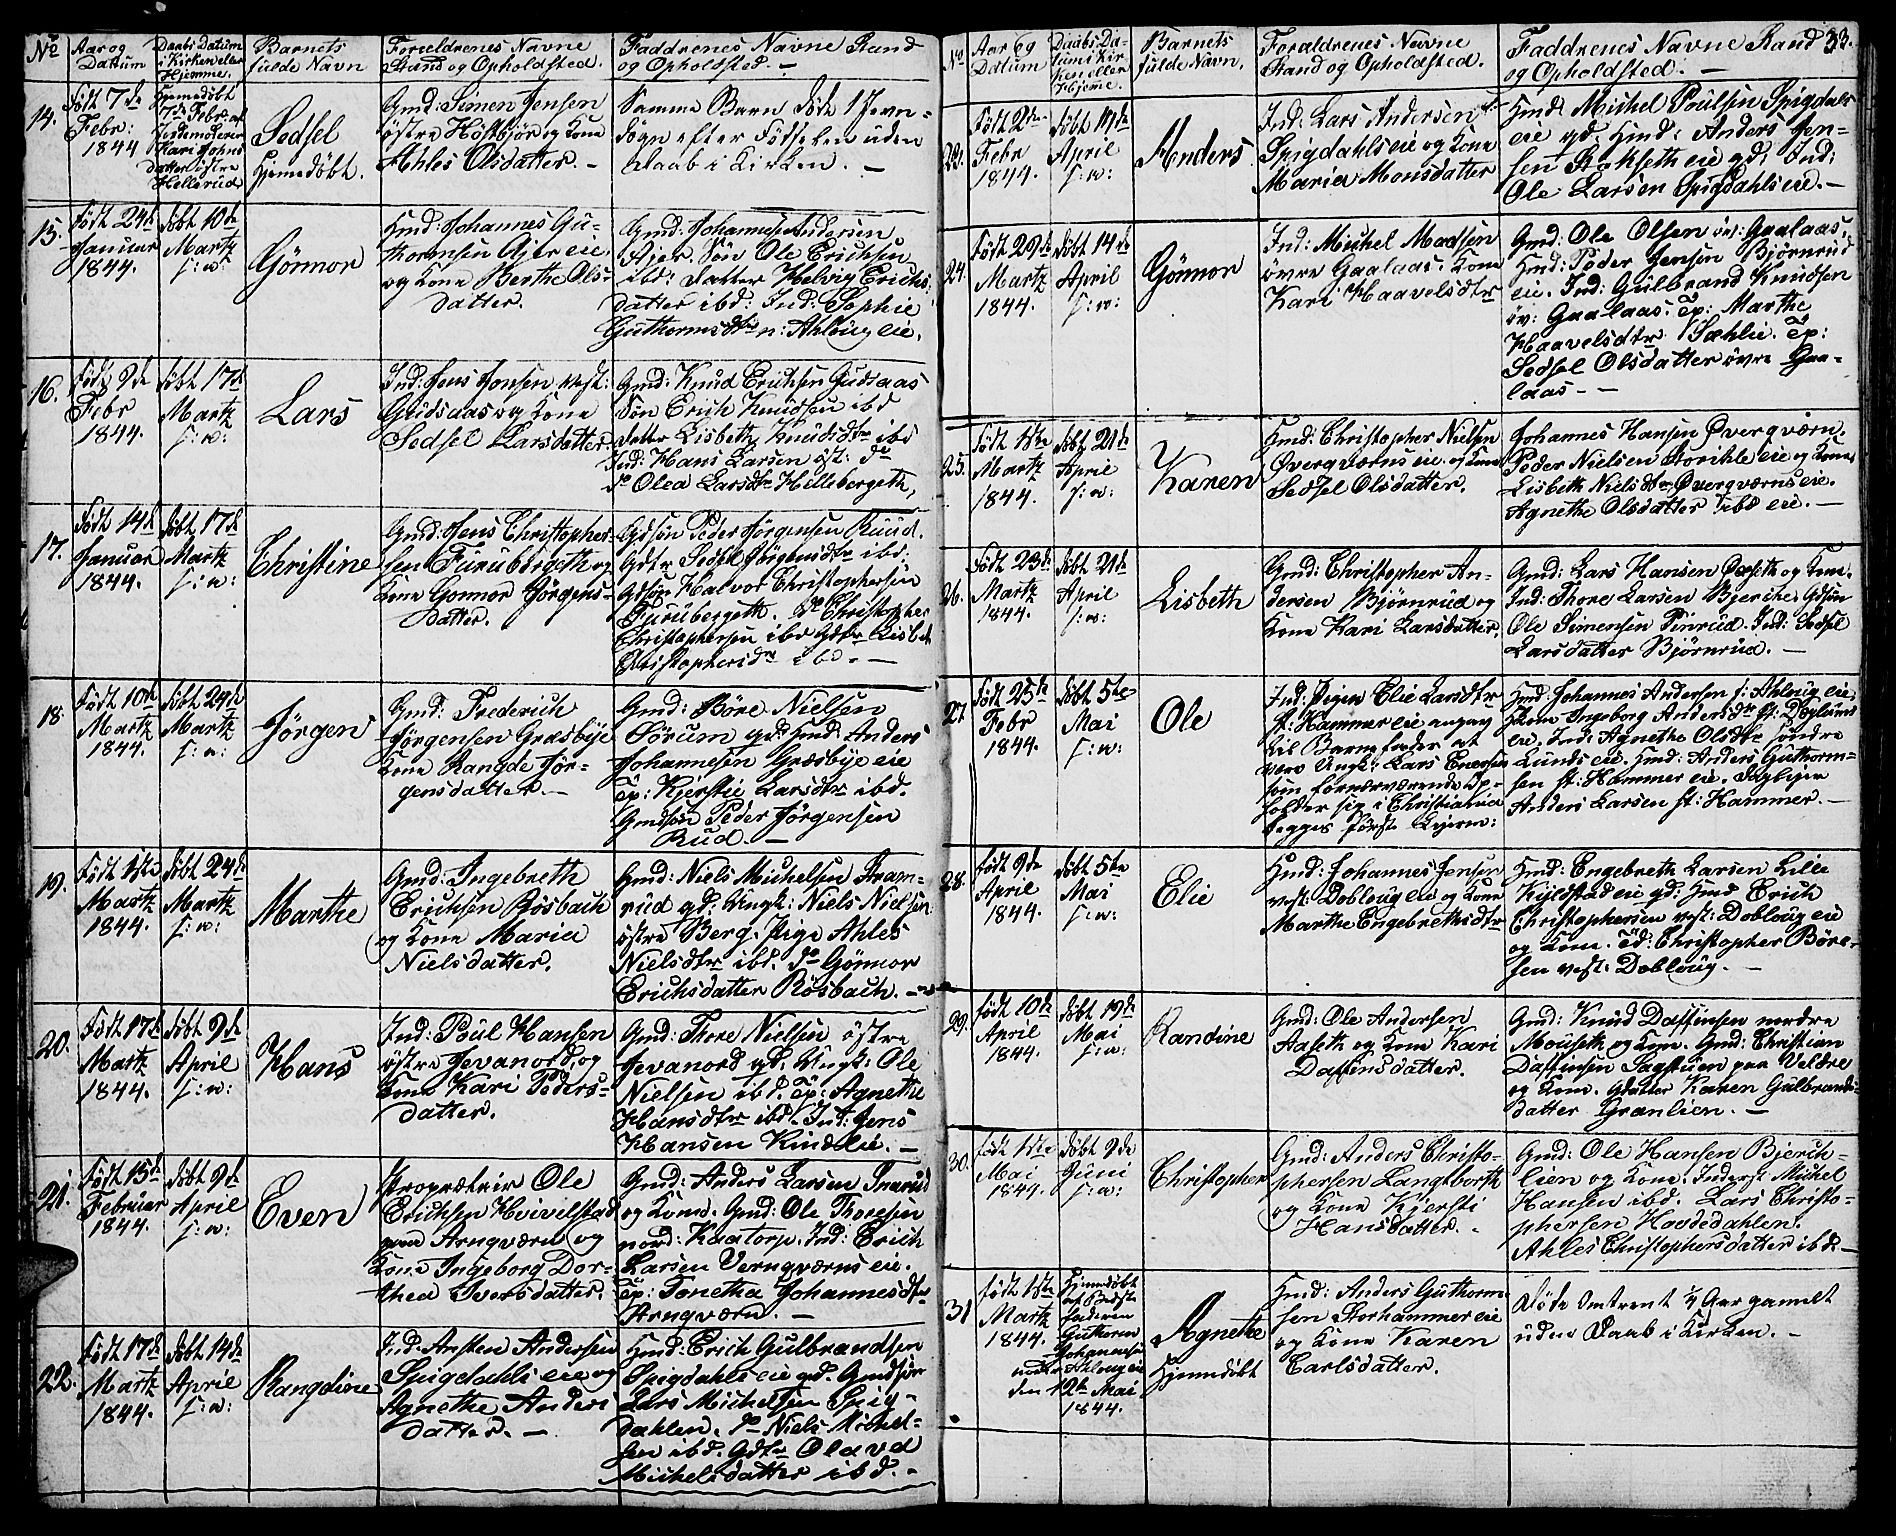 No
Aar og
Dattum
Daabs Datum
i Kirken eller
Hjemme.
Barnets
fulde Navn
Forældrenes Navne
Stand og Opholdsted.
Faddrenes Navne Stand
og Opholdsted. —
14.
Født 7de
Febr:
1844
Hjemedøbt
7de Febr: af
Jordemoderen
Kari Johns
datter østre
Hellerud
Sedsel
Hjemedøbt.
Gmd: Simen Jensen
østre Høstbjør og Kone
Ahles Olsdatter. —
Samme Barn døde 1 Jevn-
døgn efter Fødselen uden
Daab i Kirken. —
15.
Født 24de
Januar
1844.
døbt 10de
Martz
f: n:
Gønnor
Hmd: Johannes Gu-
thormsen Ajer eie.
og Kone Berthe Ols-
datter.
Gmd: Johannes Andersen
Ajer. Søn Ole Erichsen
ibd: Datter Helvig Erichs
datter ibd: Ind: Sophie
Guthormsdtr n: Ahloug eie.
16.
Født 9de
Febr
1844.
døbt 17de
Martz
f: n:
Lars
Ind: Jens Jonsen vest:
Gudsaas og Kone
Sedsel Larsdatter
Gmd: Knud Erichsen Gudsaas
Søn Erich Knudsen ibd
datter Lisbeth Knudsdtr ibd
Ind: Hans Larsen øst: do
Po Olea Larsdtr Hillebergeth,
17.
Født 14de
Januar
1844.
døbt 17de
Martz
f: n:
Christine
Gmd: Jens Christopher
sen Furubergeth og
Kone Gonnor Jørgens-
datter.
Gdsøn Peder Jørgensen Ruud.
Gdtr Sedsel Jørgensdtr ibd.
Gdsøn Halvor Christophersen
Furubergeth. do Christopher
Christophersen ibd Gdtr Lisbet
Christophersdr ibd. —
18.
Født 10de
Martz
1844.
døbt 24de
Martz
f: n:
Jørgen
Gmd: Frederich
Jørgensen Græsbye
Kone Rangde Jør-
gensdatter. —
Gmd: Børe Nielsen
Sørum gd: Hmd: Anders
Johannesen Græsbye eie
Tp: Kjerstie Larsdtr ibd.
Gmdsøn Peder Jørgensen
Rud. —
19.
Født 1ste
Martz
1844.
døbt 24de
Martz
f: n:
Marthe
Gmd: Ingebreth
Erichsen Røsbach
og Kone Maria
Nielsdatter.
Gmd: Niels Michelsen Fram-
rud gd: Ungk: Niels Nielsen
østre Berg. Pige Ahles
Nielsdtr ibd. do Gønnor
Erichsdatter Røsbach. —
20.
Født 17de
Martz
1844.
døbt 9de
April
f: n:
Hans
Ind: Poul Hansen
østre Jevanord og
Kone Kari Peders-
datter.
Gmd: Thore Nielsen østre
Jevanord gd. Ungk: Ole
Nielsen ibd. Tp: Agnethe
Hansdtr ibd. Ind: Jens
Hansen Kindlie. —
21.
Født 15de
Februar
1844.
døbt 9de
April
f: n:
Even
Proprætair Ole
Erichsen Hvivelstad
paa Arnqværn og
Kone Ingeborg Dor-
thea Iversdatter.
Gmd: Anders Larsen Snarud
og Kone. Gmd: Ole Thoresen
nord: Kaatorp. Ind: Erich
Larsen Vernqværns eie.
Tp: Tonetha Johannesdtr
Arnqværn. —
22.
Født 17de
Martz
1844.
døbt 14de
April
f: n:
Rangdine
Ind: Ansten Andersen
Spigdahls eie og
Agnethe Anders
datter. —
Hmd: Erich Gulbrandsen
Spigdahls eie gd. Gmdsøn
Lars Michelsen Spig-
dahlen. do Niels Michel-
sen ibd. Gdtr Olava
Michelsdatter ibd. —
No
Aar og
Datum
Daabs Da-
tum i Kir-
ken eller
Hjeme.
Barnets
fulde Navn.
Forældrenes Navne
Stand og Opholdsted.
Faddrenes Navne Stand
og Opholdsted. —
33.
Født 2den
Febr
1844.
døbt 14de
April
f: n:
Anders
Ind: Lars Andersen
Spigdahls eie og Kone
Maria Monsdatter
Hmd: Michel Poulsen Spigdals
eie gd. Hmd: Anders Jen-
sen Stokseth eie gd. Ind:
Ole Larsen Spigdahls eie. —
24.
Født 29de
Martz
1844.
døbt 14de
April
f: n:
Gønnor
Ind: Michel Madsen
øvre Gaalaas. Kone
Kari Haavelsdtr
Gmd: Ole Olsen øv: Gaalaas.
Hmd: Peder Jensen Bjørnrud
eie. Ind: Gulbrand Knudsen
øv: Gaalaas. Tp: Marthe
Haavelsdtr Sæhlie. Tp:
Sedsel Olsdatter øvre Gaa-
laas. —
25.
Født 1ste
Martz
1844.
døbt 21de
April
f: n:
Karen
Hmd: Christopher Nielsen
Øverqværns eie og Kone
Sedsel Olsdatter.
Johannes Hansen Øverqværn.
Peder Nielsen Storihle eie og Kone
Lisbeth Nielsdtr Øverqværns eie.
Agnethe Olsdatter ibd eie. —
26.
Født 23de
Martz
1844.
døbt 21de
April
f: n:
Lisbeth
Gmd: Christopher An-
dersen Bjørnrud og
Kone Kari Larsdatter.
Gmd: Lars Hansen Deseth og Kone.
Ind: Thore Larsen Bjerche. Gdsøn
Ole Simensen Finrud. Ind: Sedsel
Larsdatter Bjørnrud. —
27.
Født 25de
Febr
1844.
døbt 5te
Mai
f: n:
Ole
Ind: Pigen Elie Larsdtr
st: Hammer eie angav
til Barnefader at
være Ungk: Lars Enersen
som fornærværende Op-
holder sig i Christiania
begges første Leierm:
Hmd: Johannes Andersen f: Ahloug eie,
Kone Ingeborg Andersdtr st: Døglums
eie. Ind: Agnethe Olsdtr søndre
Lunds eie. Hmd: Anders Guthorm-
sen st: Hammer eie. Inbygen
Anders Larsen st: Hammer. —
28.
født 9de
April
1844.
døbt 5te
Mai
f: n:
Elie
Hmd: Johannes Jensen
vest: Dobloug eie og Kone
Marthe Engebrethsdtr
Hmd: Engebreth Larsen Lille
Kyldstad eie gd: Hmd Erich
Christophersen vest: Dobloug eie
og Kone. Td: Christopher Børe-
sen vest: Dobloug. —
29.
født 10de
April
1844.
døbt 19de
Mai
f: n:
Randine
Gmd: Ole Andersen
Aaseth og Kone Kari
Daffinsdatter.
Gmd: Knud Daffinsen nordre
Mouseth og Kone. Gmd: Christian
Daffinsen Sagstuen paa Veldre
og Kone. Gdatter Karen Gulbrands-
datter Granlien. —
30.
født 1ste
Mai
1844.
døbt 9de
Juni
f: n:
Christopher
Gmd: Anders Christo-
phersen Langtorsth
og Kone Kjersti
Hansdatter. -
Gmd: Ole Hansen Bjerch-
lien og Kone. Inderst Michel
Hansen ibd. Lars Christo-
phersen Hovdedahlen.
Ahles Christophersdatter ibd —
31
født 1ste
Martz
1844.
Hjemedøbt
af Bedste
faderen
Guthorm
Johannesen
nordre Ahloug eie
den 12te Mai
1844.
Agnethe
Hjemedøbt
Hmd: Anders Guthorm-
sen Storhammer eie
og Kone Karen
Carlsdatter.
Døde omtrent 1/4 Aar gammel
uden Daab i Kirken. —